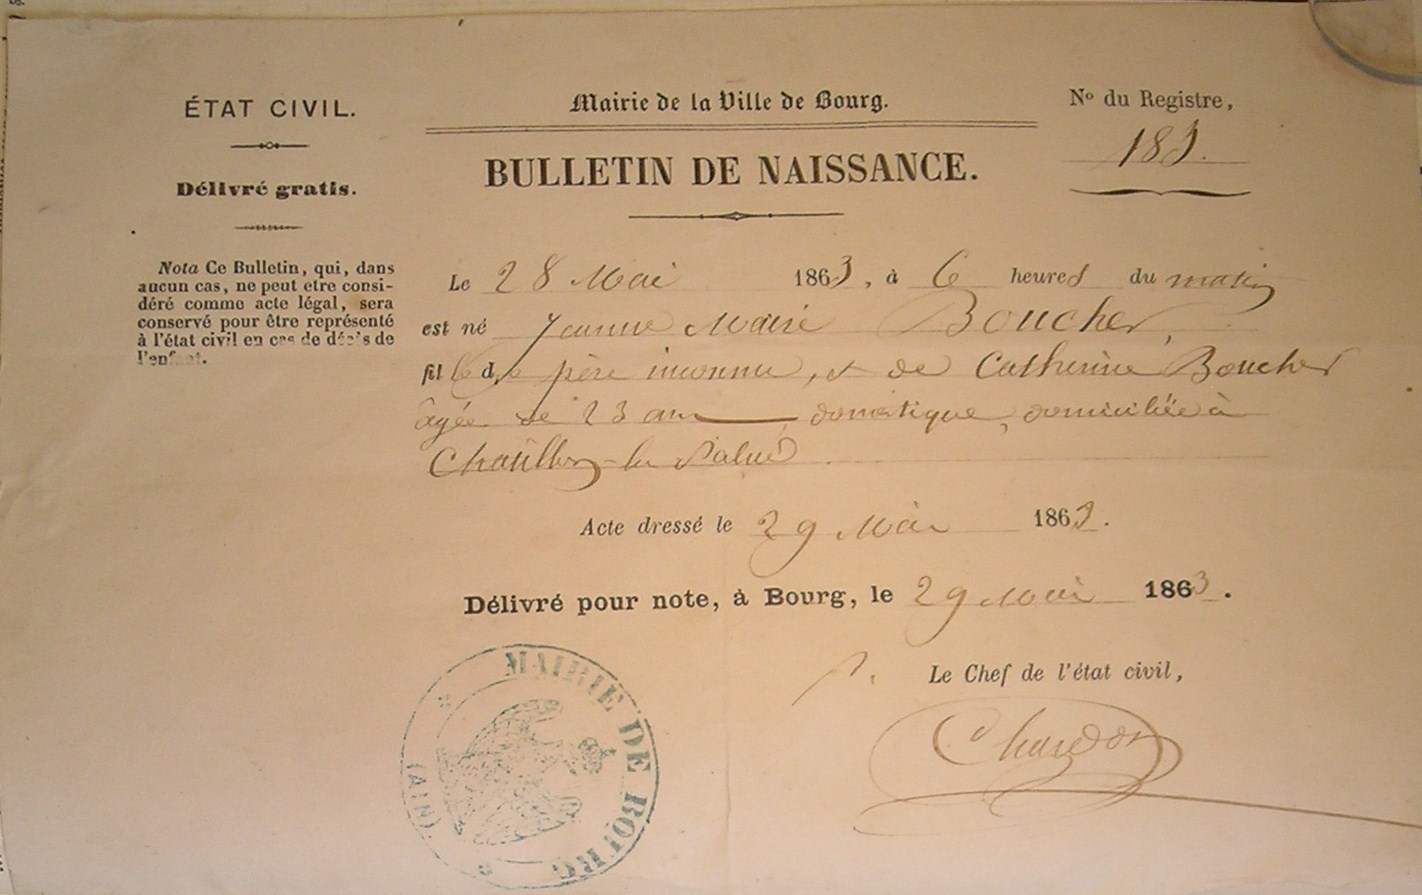 ÉTAT CIVIL.
Délivré gratis.
Nota Ce Bulletin, qui, dans
aucun cas, ne peut etre consi-
déré comme acte légal, sera
conservé pour être représenté
à l'état civil en cas de décès de
l'enfant.
Mairie de la Ville de Bourg.
BULLETIN DE NAISSANCE.
Nº du Registre,
183.
Le 28 Mai 1863, à 6 heures du matin
est né Jeanne Marie Boucher,
fille de père inconnu, et de Catherine Boucher
âgée de 23 ans domestique, domiciliée à
Châtillon-la Palud
Acte dressé le 29 Mai 1863.
Délivré pour note, à Bourg, le 29 Mai 1863.
Le Chef de l'état civil,
Chardon
MAIRIE DE BOURG
(AIN)